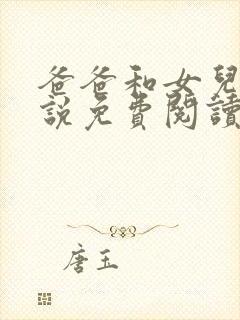 爸爸和女兒
說免費閱讀
唐玉